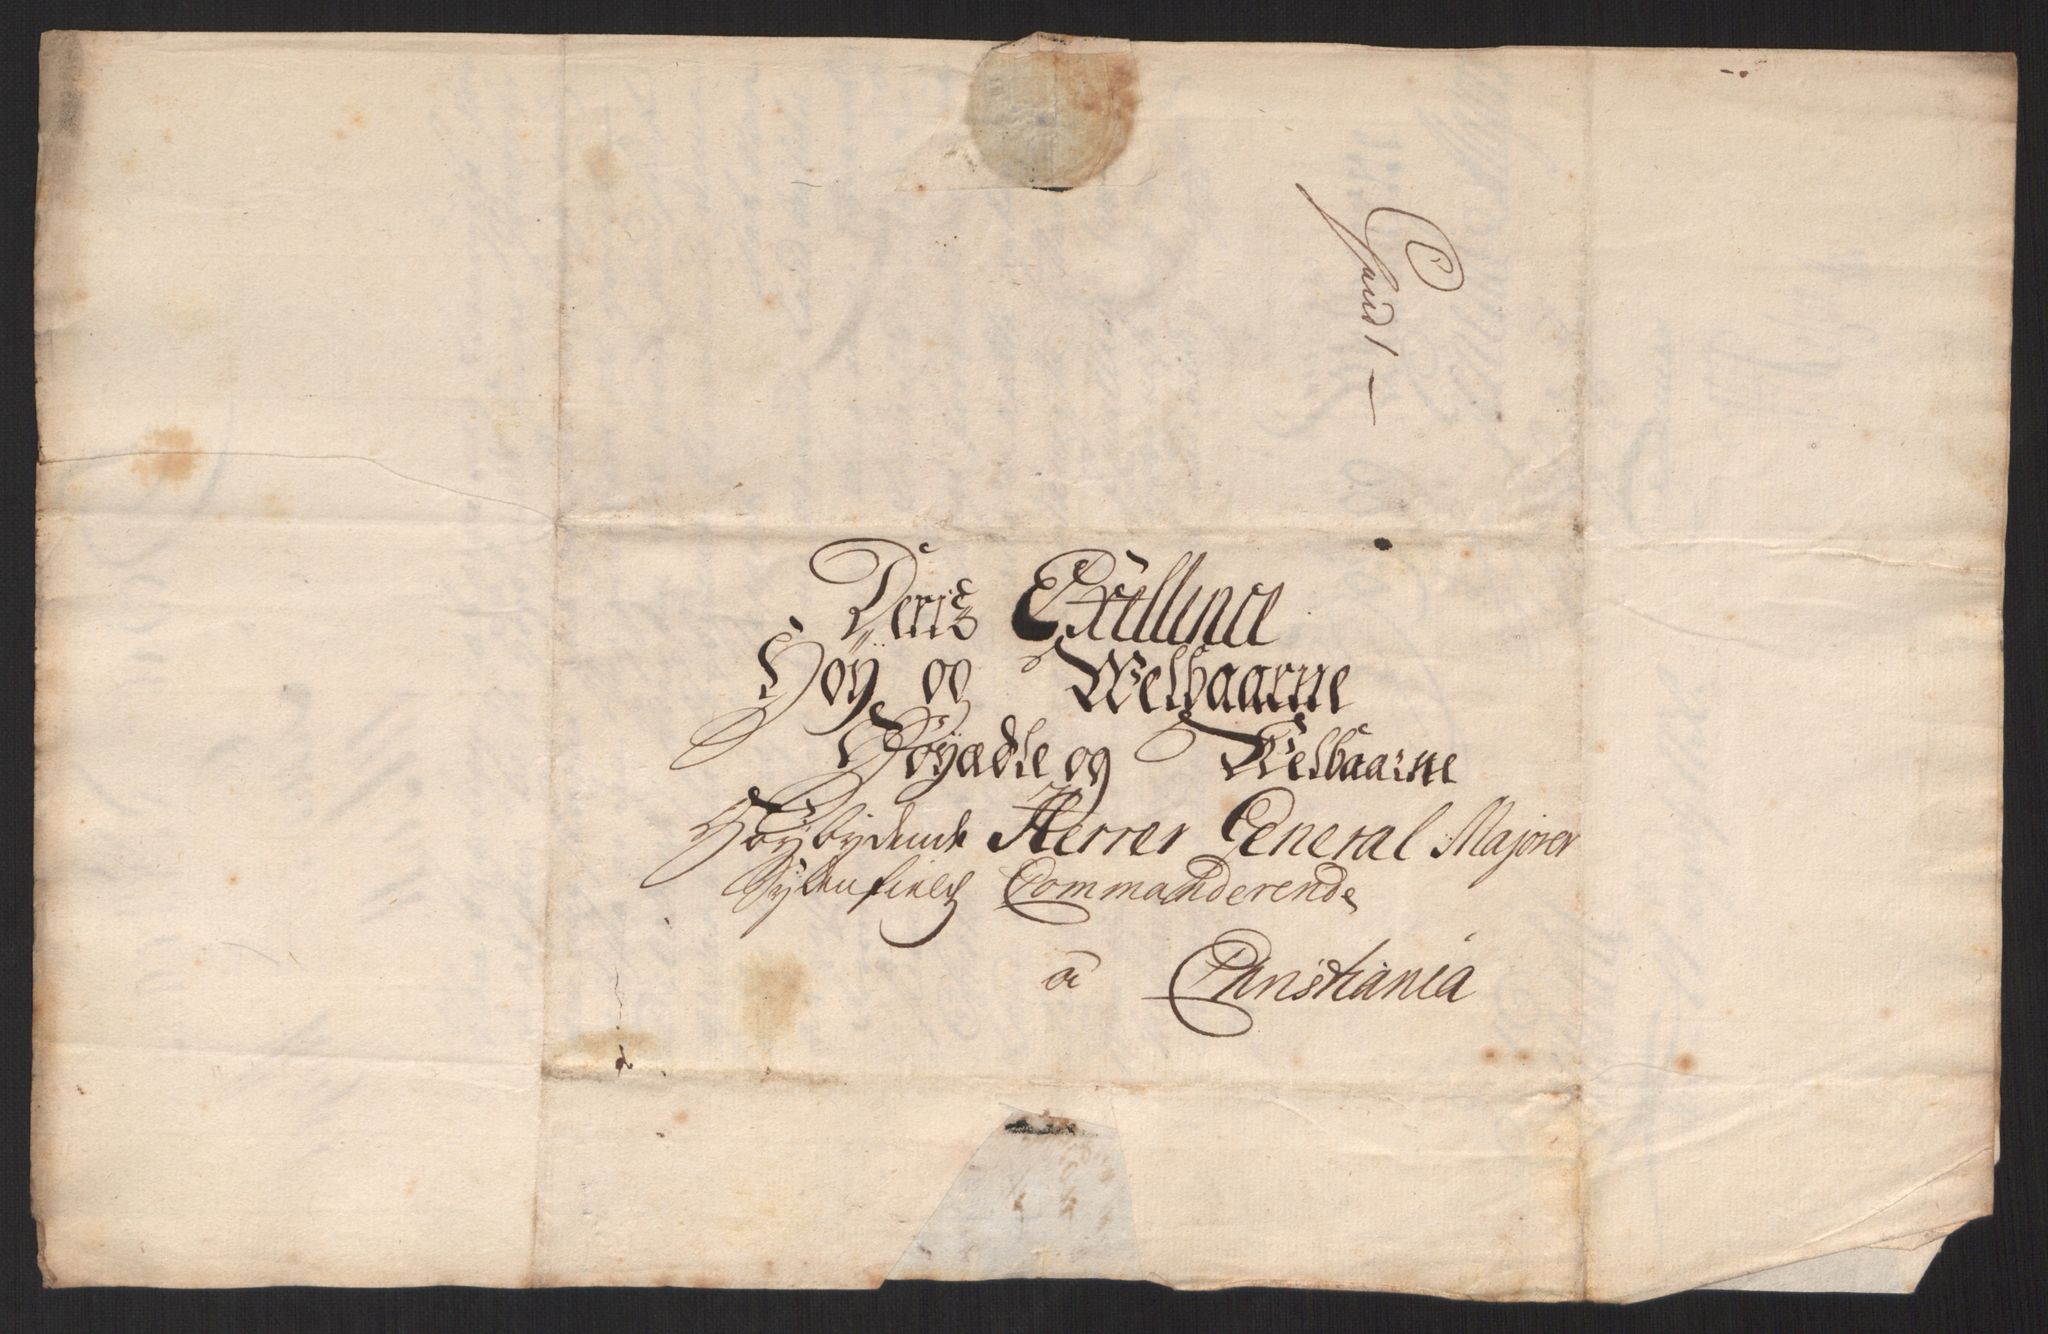 Deris Excellence
Høy og Welbaarne
Høyædle og Welbaarne
Høybydende Herrer General Majorer
Commanderende
a Christiania